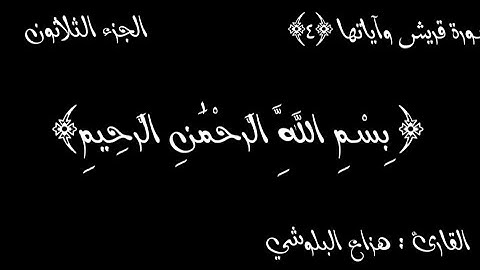 سورة قريش وآياتها ﴿٤﴾
الجزء الثلاثون
﴿بِسْمِ اللَّهِ الرَّحْمَٰنِ الرَّحِيمِ﴾
القارئ : هزاع البلوشي